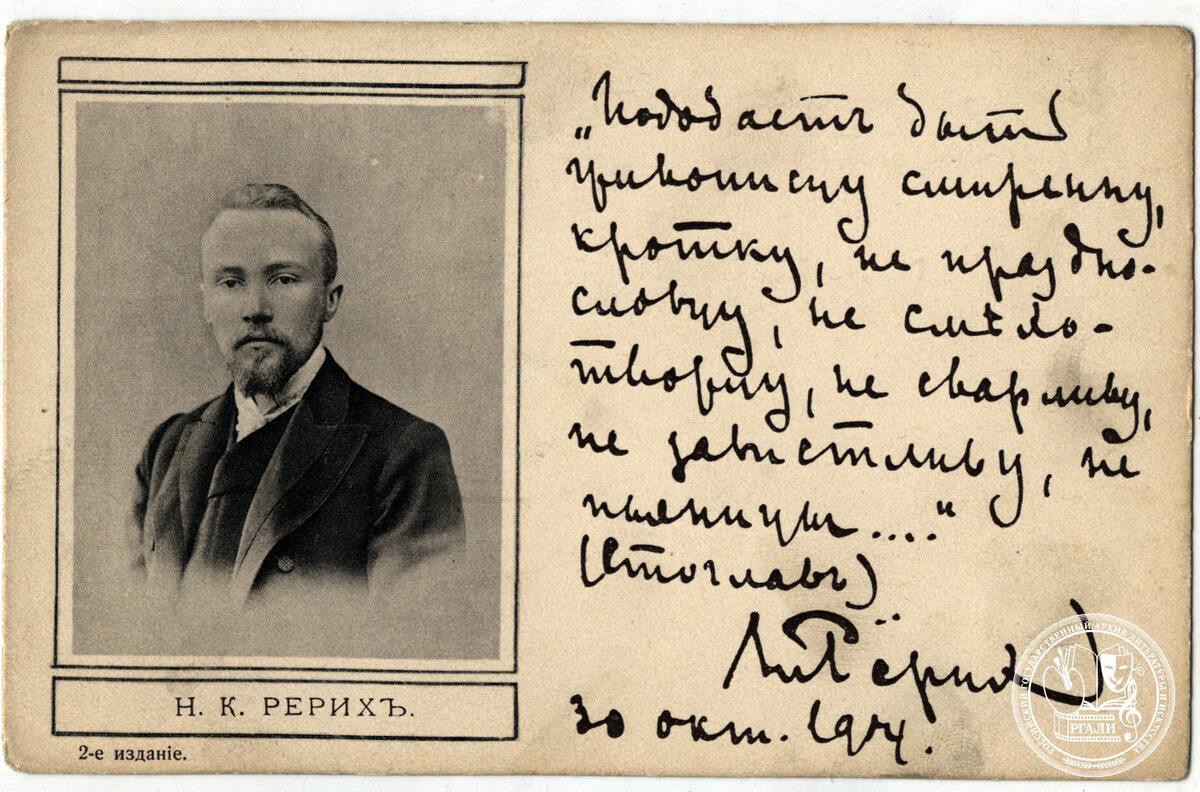 „Подобаетъ быти
живописцу смиренну,
кротку, не праздно-
словцу, не смѣхо-
творцу, не сварливу,
не завистливу, не
пьяницы...."
(Стоглавъ)
НРёрихъ
30 окт. 1904.
Н. К. РЕРИХЪ.
2-е изданіе.
РОССИЙСКИЙ ГОСУДАРСТВЕННЫЙ АРХИВ ЛИТЕРАТУРЫ И ИСКУССТВА
РГАЛИ